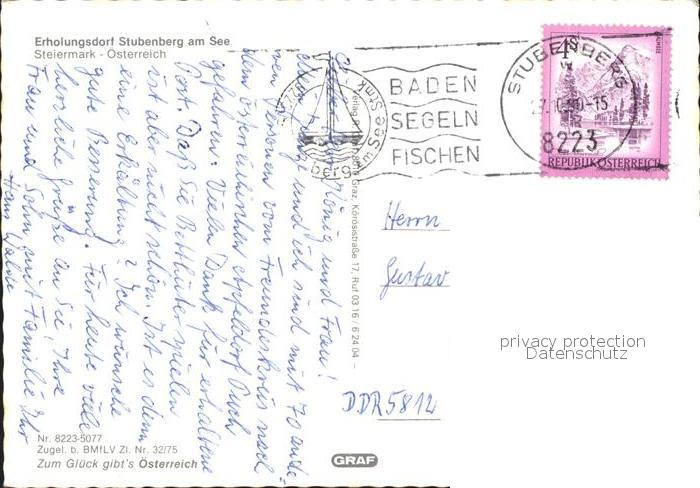 Erholungsdorf Stubenberg am See
Steiermark - Österreich
8223
am See Stmk
BADEN
SEGELN
FISCHEN
STUBENBERG
-15
8223
REPUBLIK ÖSTERREICH
König und Frau!
und ich sind mit 70 ande-
ren Personen vom Freundeskreis nach
dem österreichischen Apfeldorf Puch
gefahren. Vielen Dank für erhaltene
Post. Daß Sie Betthüter spielen
ist aber nicht schön. Ist es denn
eine Erkältung? Ich wünsche
gute Besserung. Für heute viele
herzliche Grüße an Sie! Ihre
Frau und Sohn mit Familie Ihr
Hans
Graz, Körösistraße 17, Ruf 03 16 / 6 24 04 -
Herrn
Gustav
DDR 5812
privacy protection
Datenschutz
Nr. 8223-5077
Zugel. b. BMfLV Zl. Nr. 32/75
Zum Glück gibt's Österreich
GRAF